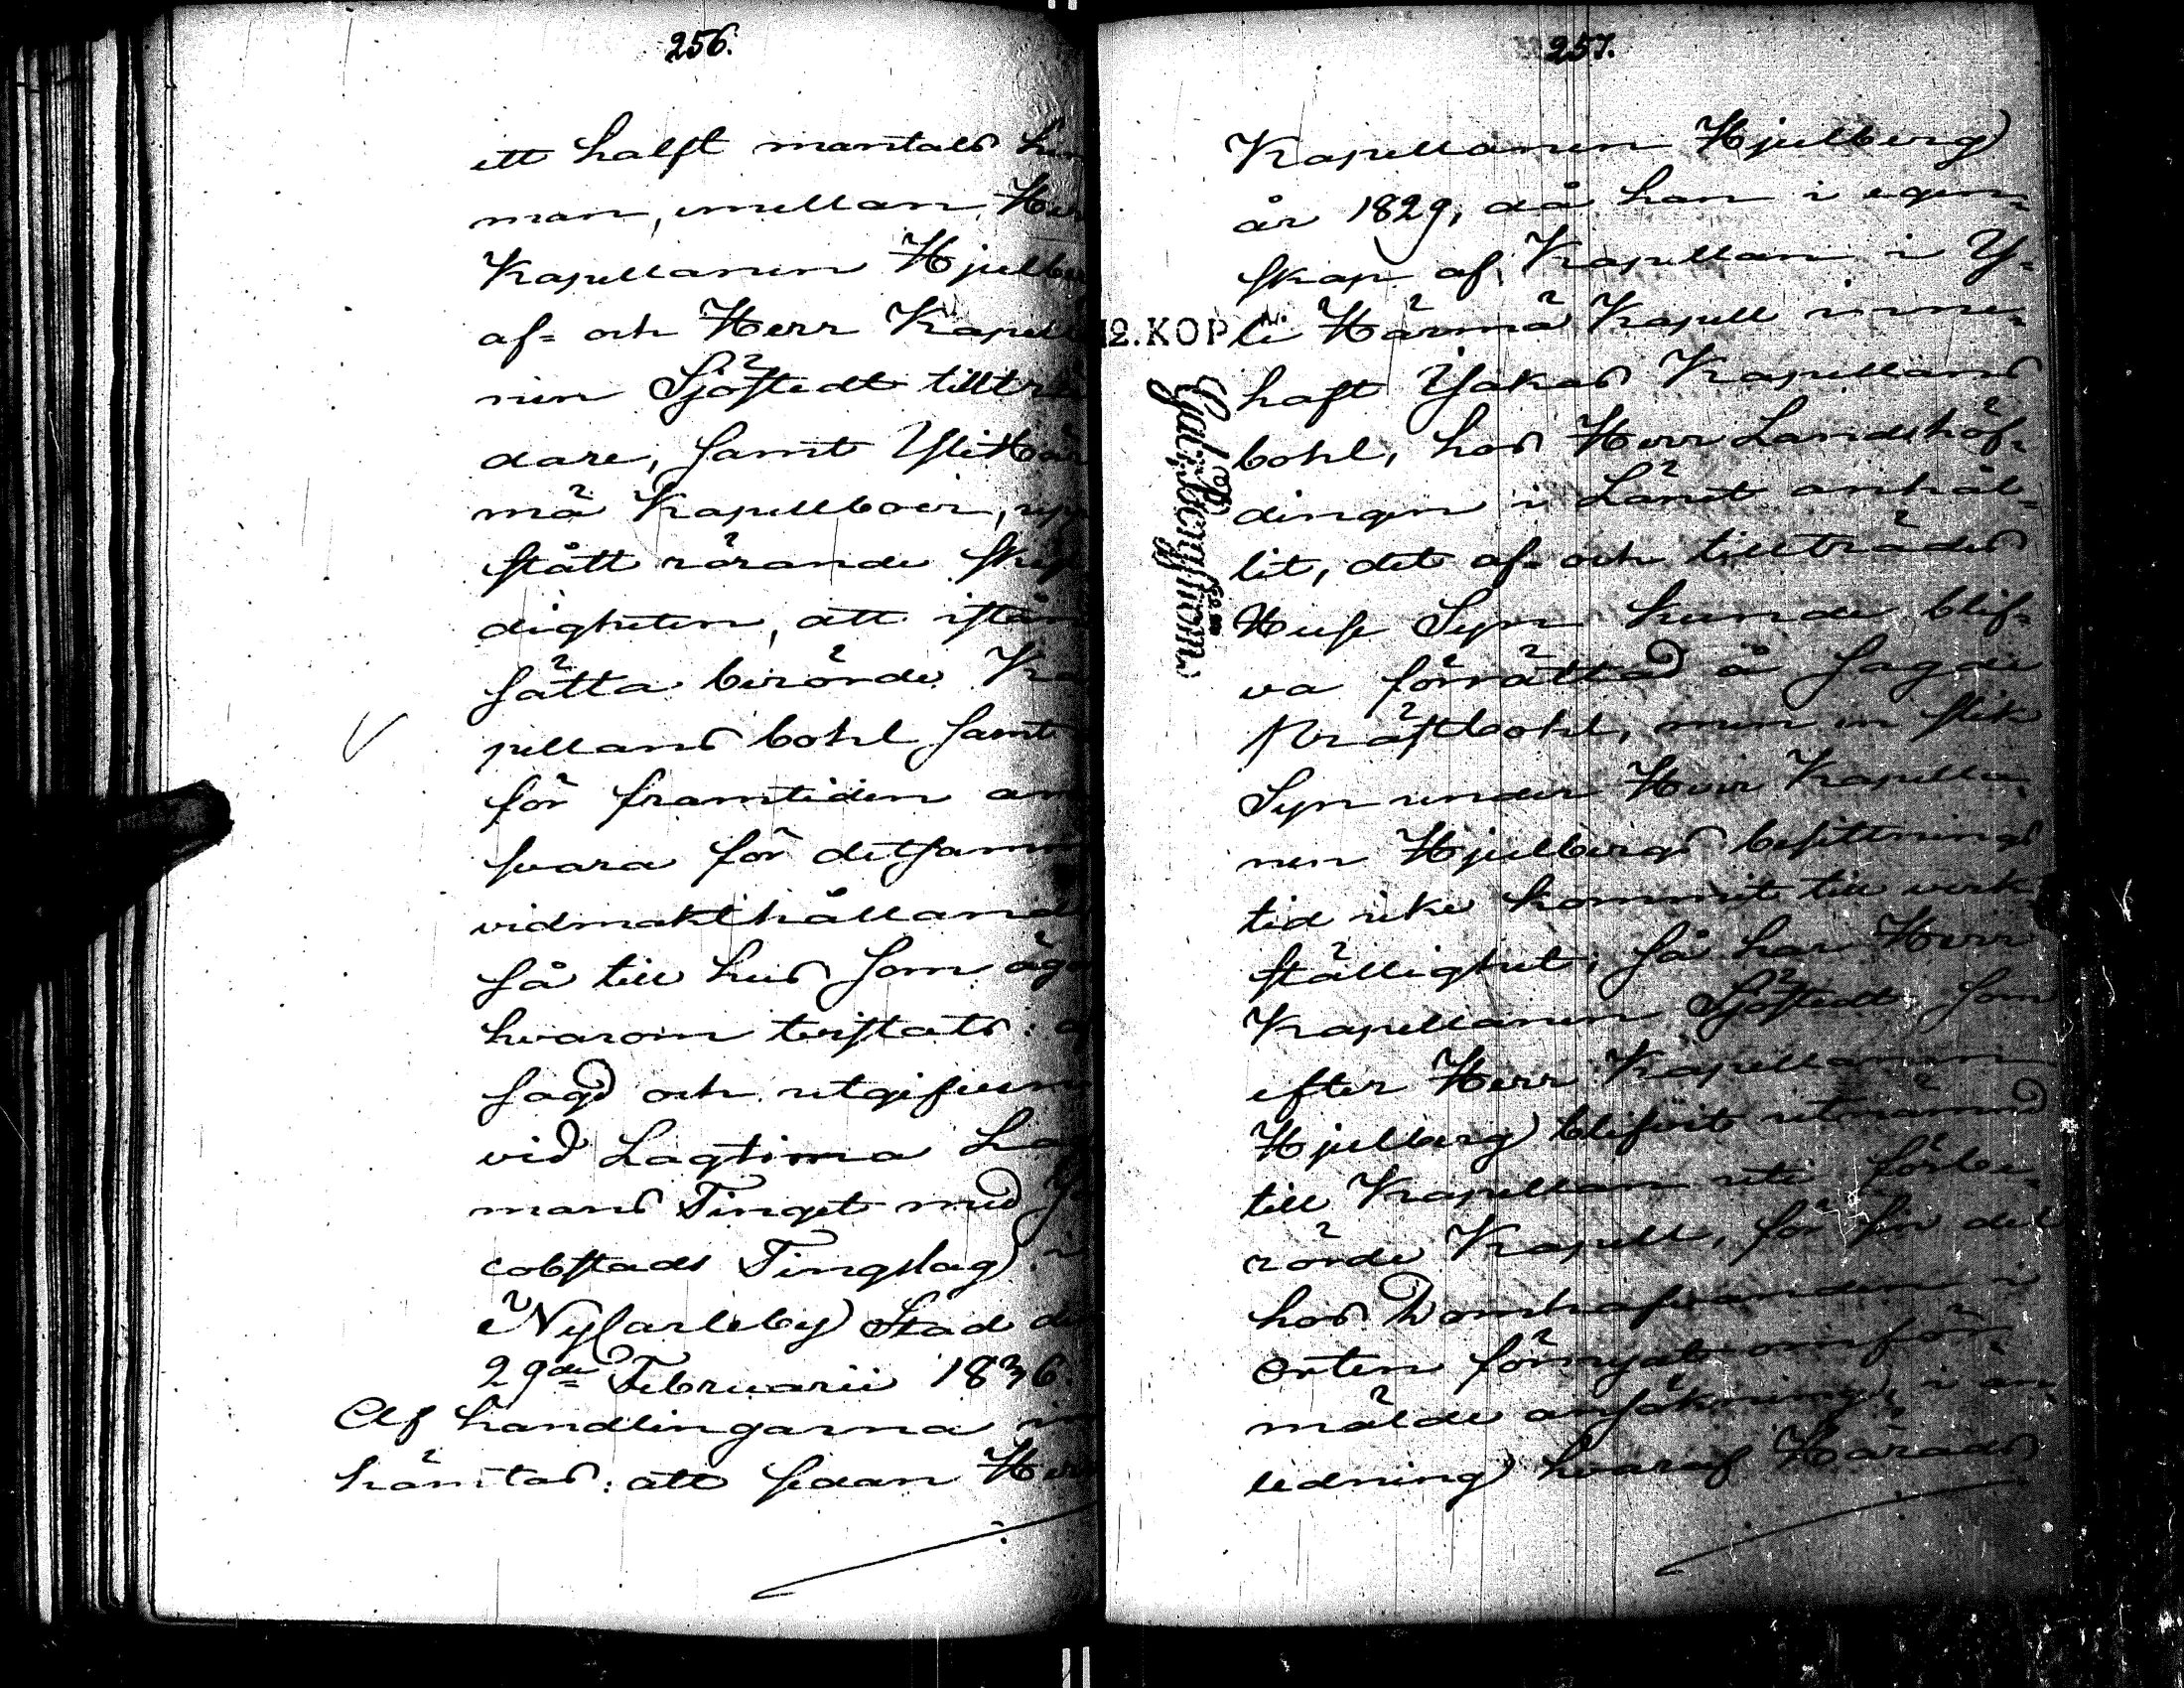 256.
ett halft mantals
man, emellan Herr
Kapellanen Hjulber
af- och Herr Kapella
nen Sjöstedt tillträ
dare, samt YliHär
mä Kapellboer, upp
stått rörande skyl
digheten, att istånd
sätta berörde Ka
pellans bohl samt
för framtiden an
svara för detsamm
vidmakthållande
så till hus som äg
hvarom tvistats: af
sagd och utgifven
vid Lagtima Lag
mans Tinget med Ja
cobstads Tingslag i
NyCarleby Stad de
29de Februarii 1836.
Af handlingarna in
hämtas: att sedan Herr
257.
Kapellanen Hjulberg
år 1829, då han i egen-
skap af Kapellan i Y-
li Härmä Kapell inne-
12. KOP.
haft Ylakas Kapellans
bohl, hos Herr Landshöf-
dingen i Länet anhål-
lit, det af- och tillträdes
Huse Syn kunde blif-
va förrättad å sagde
Prästbohl, men en slik
Syn under Herr Kapella-
nen Hjulbergs besittnings
tid icke kommit till verk-
ställighet; så har Herr
Kapellanen Sjöstedt som
efter Herr Kapellanen
Hjulberg blifvit utnämnd
till Kapellan uti förbe-
rörde Kapell, för sin del
hos Domhafvanden i
Orten förnyat omför-
mälde ansökning, i an-
ledning hvaraf Härads